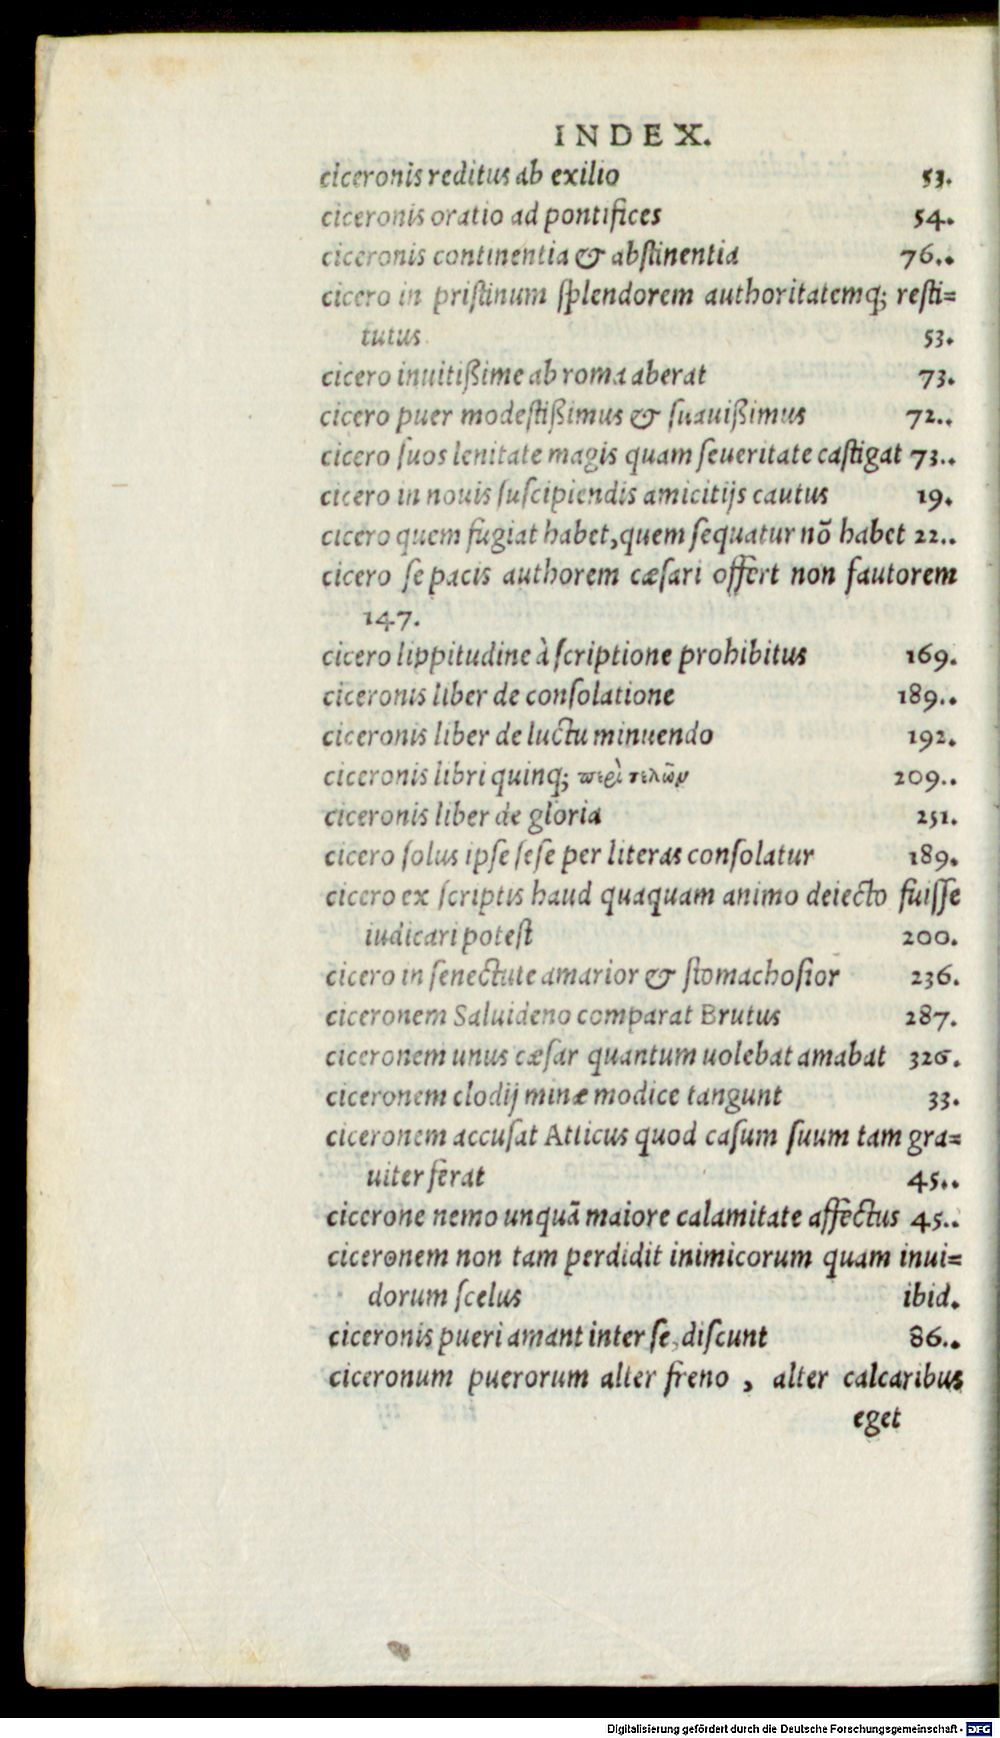 INDEX.
ciceronis reditus ab exilio 53.
ciceronis oratio ad pontifices 54.
ciceronis continentia & abstinentia 76..
cicero in pristinum splendorem authoritatemq; resti=
tutus 53.
cicero inuitißime ab roma aberat 73.
cicero puer modestißimus & suauißimus 72..
cicero suos lenitate magis quam seueritate castigat 73..
cicero in nouis suscipiendis amicitijs cautus 19.
cicero quem fugiat habet, quem sequatur nō habet 22..
cicero se pacis authorem cæsari offert non fautorem
147.
cicero lippitudine à scriptione prohibitus 169.
ciceronis liber de consolatione 189..
ciceronis liber de luctu minuendo 192.
ciceronis libri quinq; περὶ τελῶν 209..
ciceronis liber de gloria 251.
cicero solus ipse sese per literas consolatur 189.
cicero ex scriptis haud quaquam animo deiecto fuisse
iudicari potest 200.
cicero in senectute amarior & stomachosior 236.
ciceronem Saluideno comparat Brutus 287.
ciceronem unus cæsar quantum uolebat amabat 326.
ciceronem clodij minæ modice tangunt 33.
ciceronem accusat Atticus quod casum suum tam gra=
uiter ferat 45..
cicerone nemo unquā maiore calamitate affectus 45..
ciceronem non tam perdidit inimicorum quam inui=
dorum scelus ibid.
ciceronis pueri amant inter se, discunt 86..
ciceronum puerorum alter freno , alter calcaribus
eget
Digitalisierung gefördert durch die Deutsche Forschungsgemeinschaft - DFG